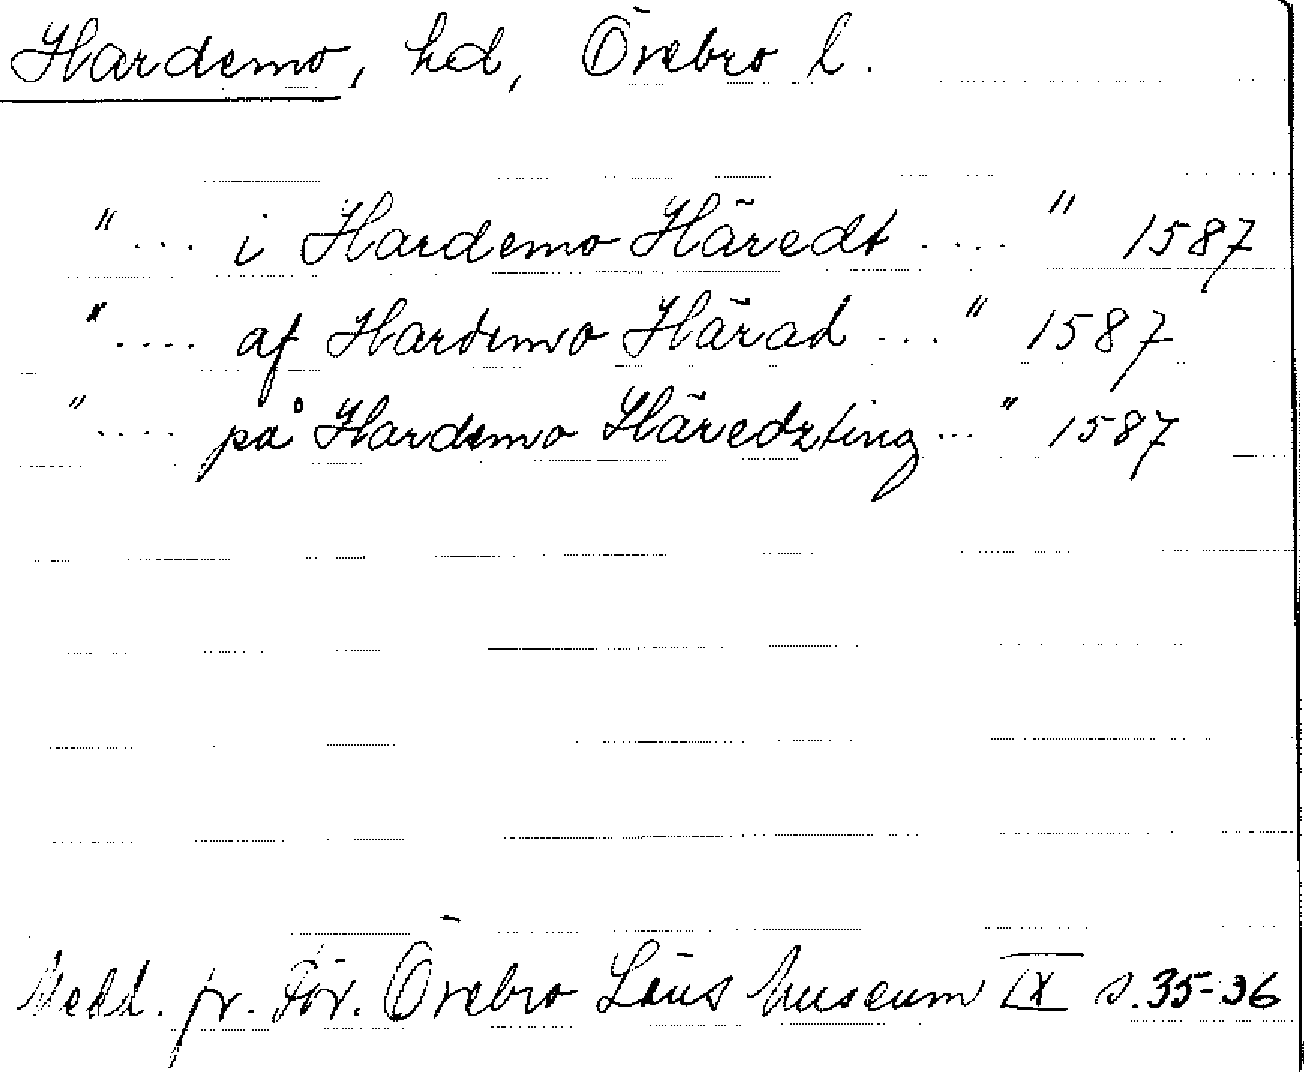 Hardemo, hd, Örebro l.
" ... i Hardemo Häredt .... " 1587
" .... af Hardemo Härad ... " 1587
" .... på Hardemo Häredzting ... " 1587
Medd. fr. För. Örebro Läns Museum IX s. 35-36